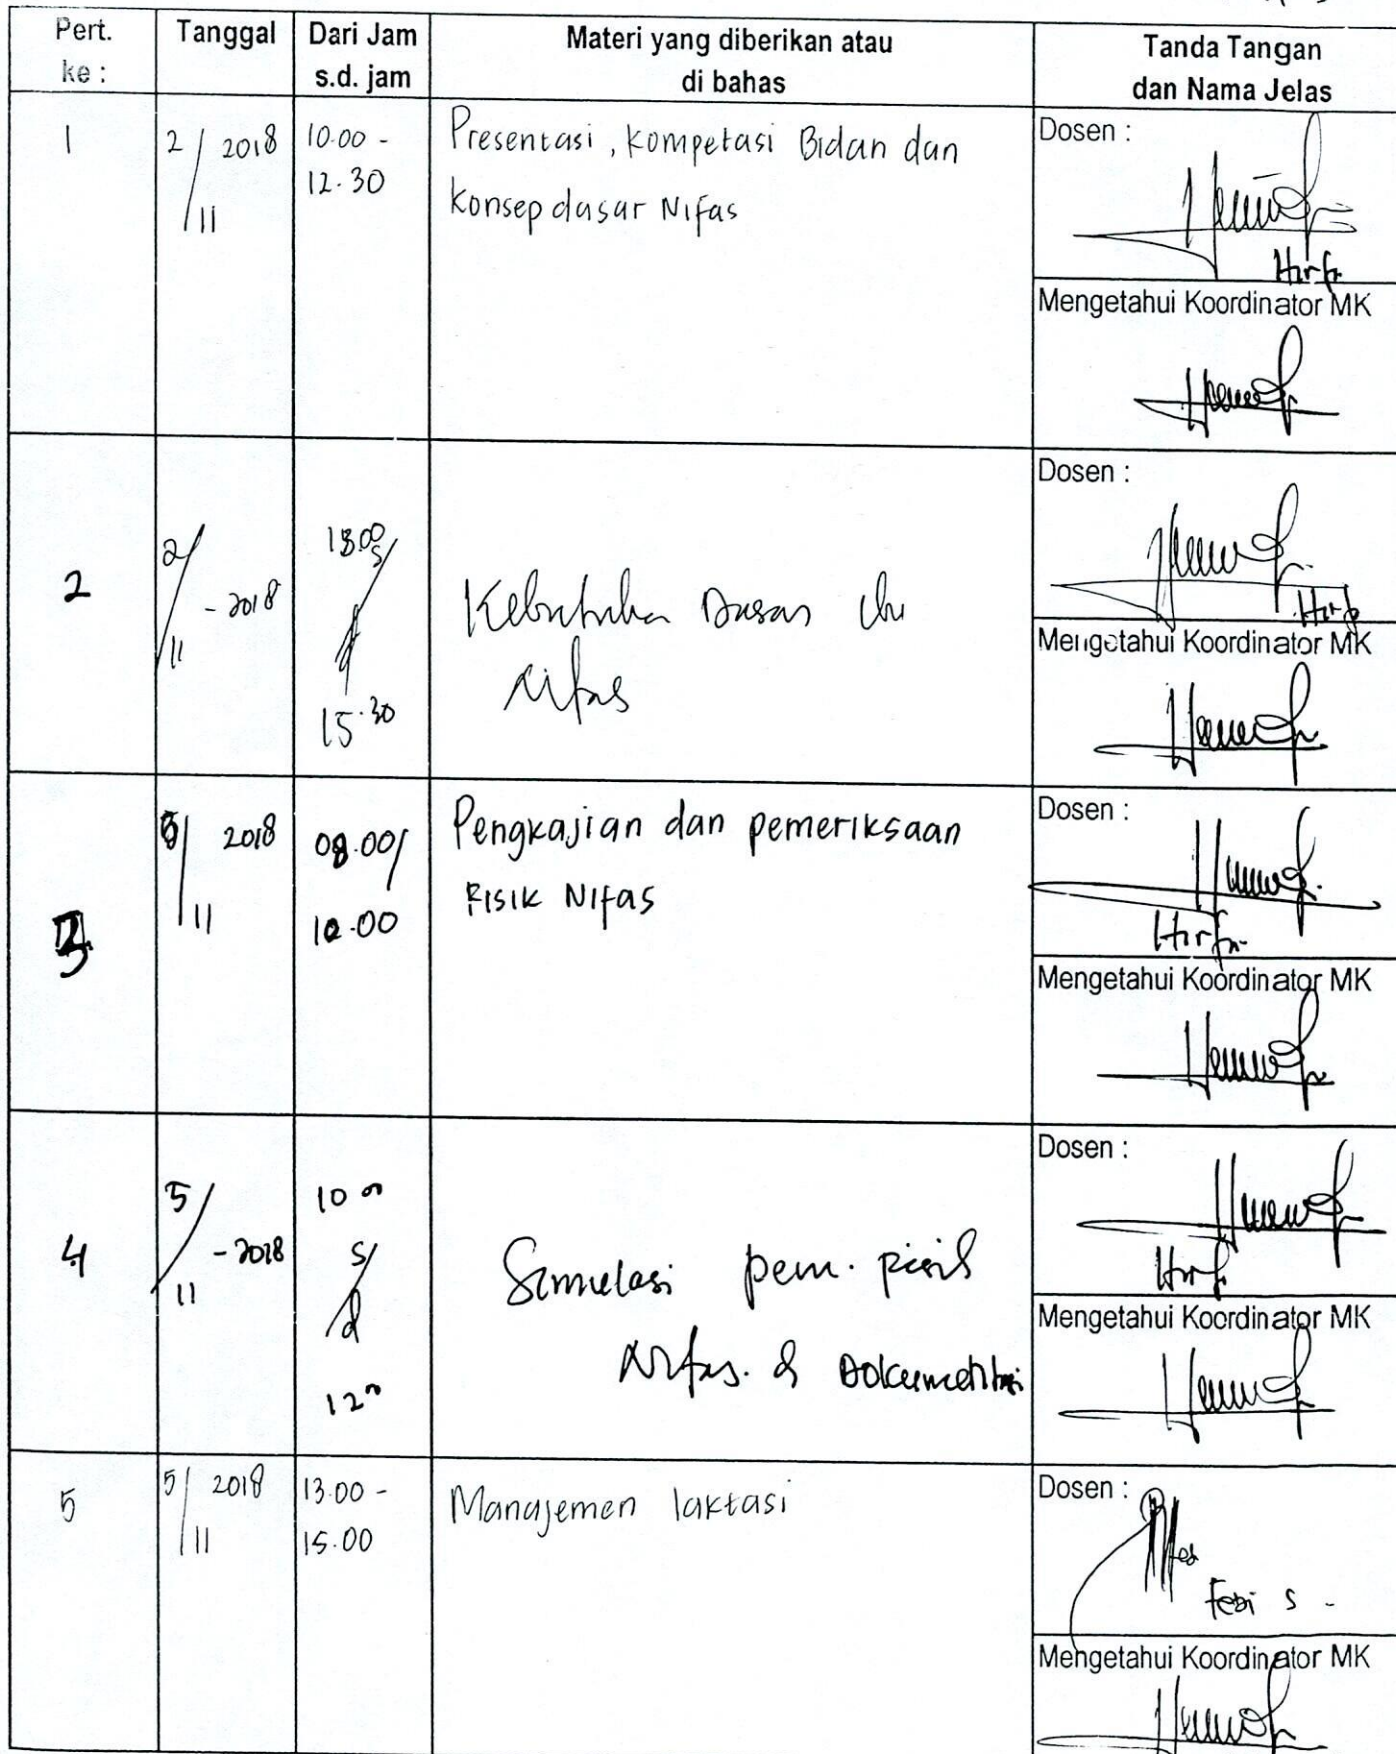 Pert. ke :
Tanggal
Dari Jam s.d. jam
Materi yang diberikan atau di bahas
Tanda Tangan dan Nama Jelas
1
2/11 2018
10.00 -
12.30
Presentasi, kompetasi Bidan dan
konsep dasar Nifas
Dosen :
Mengetahui Koordinator MK
2
2/11 - 2018
13.00
s/d
15.30
Dasar
Nifas
Dosen :
Mengetahui Koordinator MK
3
5/11 2018
08.00/
10.00
Pengkajian dan pemeriksaan
Fisik Nifas
Dosen :
Mengetahui Koordinator MK
4
5/11 - 2018
10 00
s/d
12 00
Simulasi pem.
Nifas. &
Dosen :
Mengetahui Koordinator MK
5
5/11 2018
13.00 -
15.00
Manajemen laktasi
Dosen :
Febi S -
Mengetahui Koordinator MK